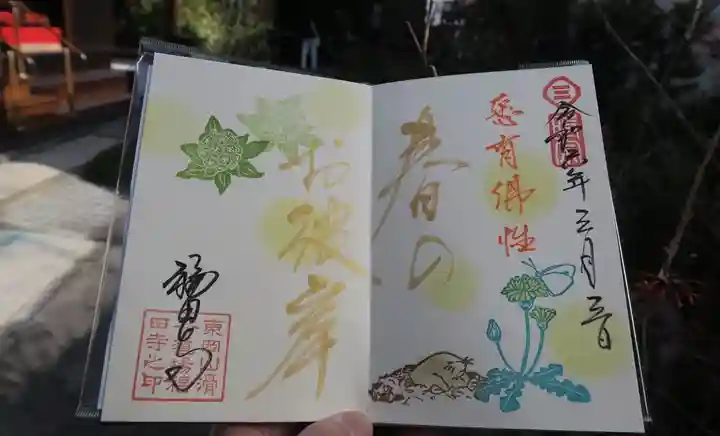 三
令和六年三月三日
悉有佛性
春の
お彼岸
福田寺
東岡山滑
田寺之印